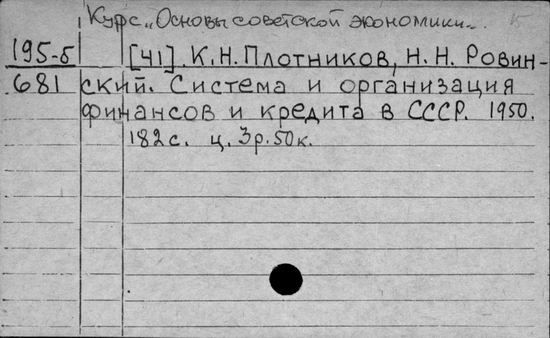 Курс „Основы советской экономики".
195-б [41]. К.Н. Плотников, Н.Н. Ровин-
681 ский. Система и организация
финансов и кредита в СССР. 1950.
182с. ц. 3р.50к.